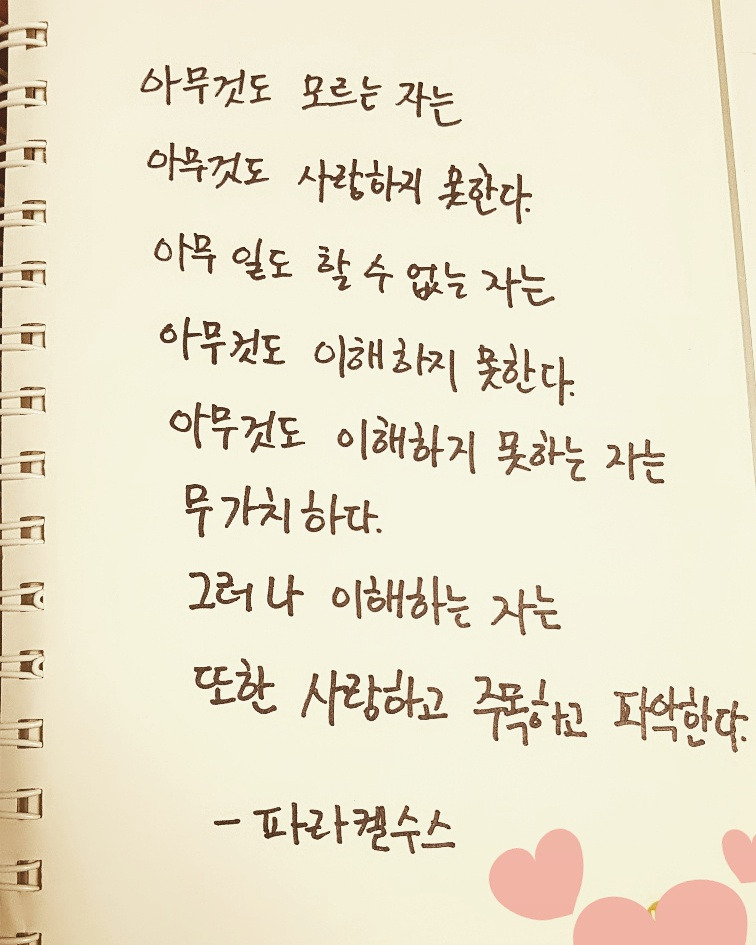 아무것도 모르는 자는
아무것도 사랑하지 못한다.
아무 일도 할 수 없는 자는
아무것도 이해하지 못한다.
아무것도 이해하지 못하는 자는
무가치하다.
그러나 이해하는 자는
또한 사랑하고 주목하고 파악한다.
- 파라켈수스